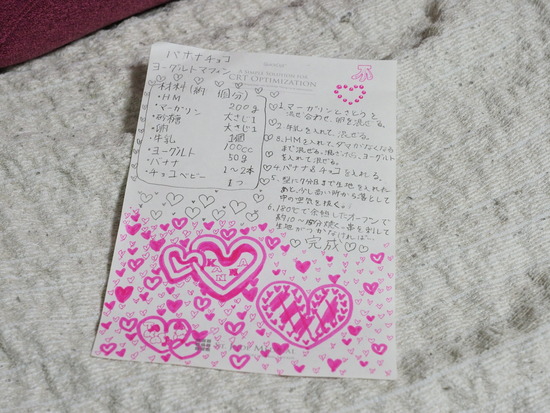 バナナチョコ
ヨーグルトマフィン
A SIMPLE SOLUTION FOR
CRT OPTIMIZATION
材料(約 個分)
・HM 200g
・マーガリン 大さじ1
・砂糖 大さじ1
・卵 1個
・牛乳 100cc
・ヨーグルト 50g
・バナナ 1〜2本
・チョコベビー 1つ
1.マーガリンとさとうを
混ぜ合わせ、卵を混ぜる。
2.牛乳を入れて、混ぜる。
3.HMを入れて、ダマがなくなる
まで混ぜる。混ざったら、ヨーグルト
を入れて混ぜる。
4.バナナ&チョコを入れる。
5.型に7分目まで生地を入れた
あと、少し高い所から落として
中の空気を抜く。
6.180℃で余熱したオーブンで
約10〜15分焼く。串を刺して
生地がつかなければ…
完成
KANA